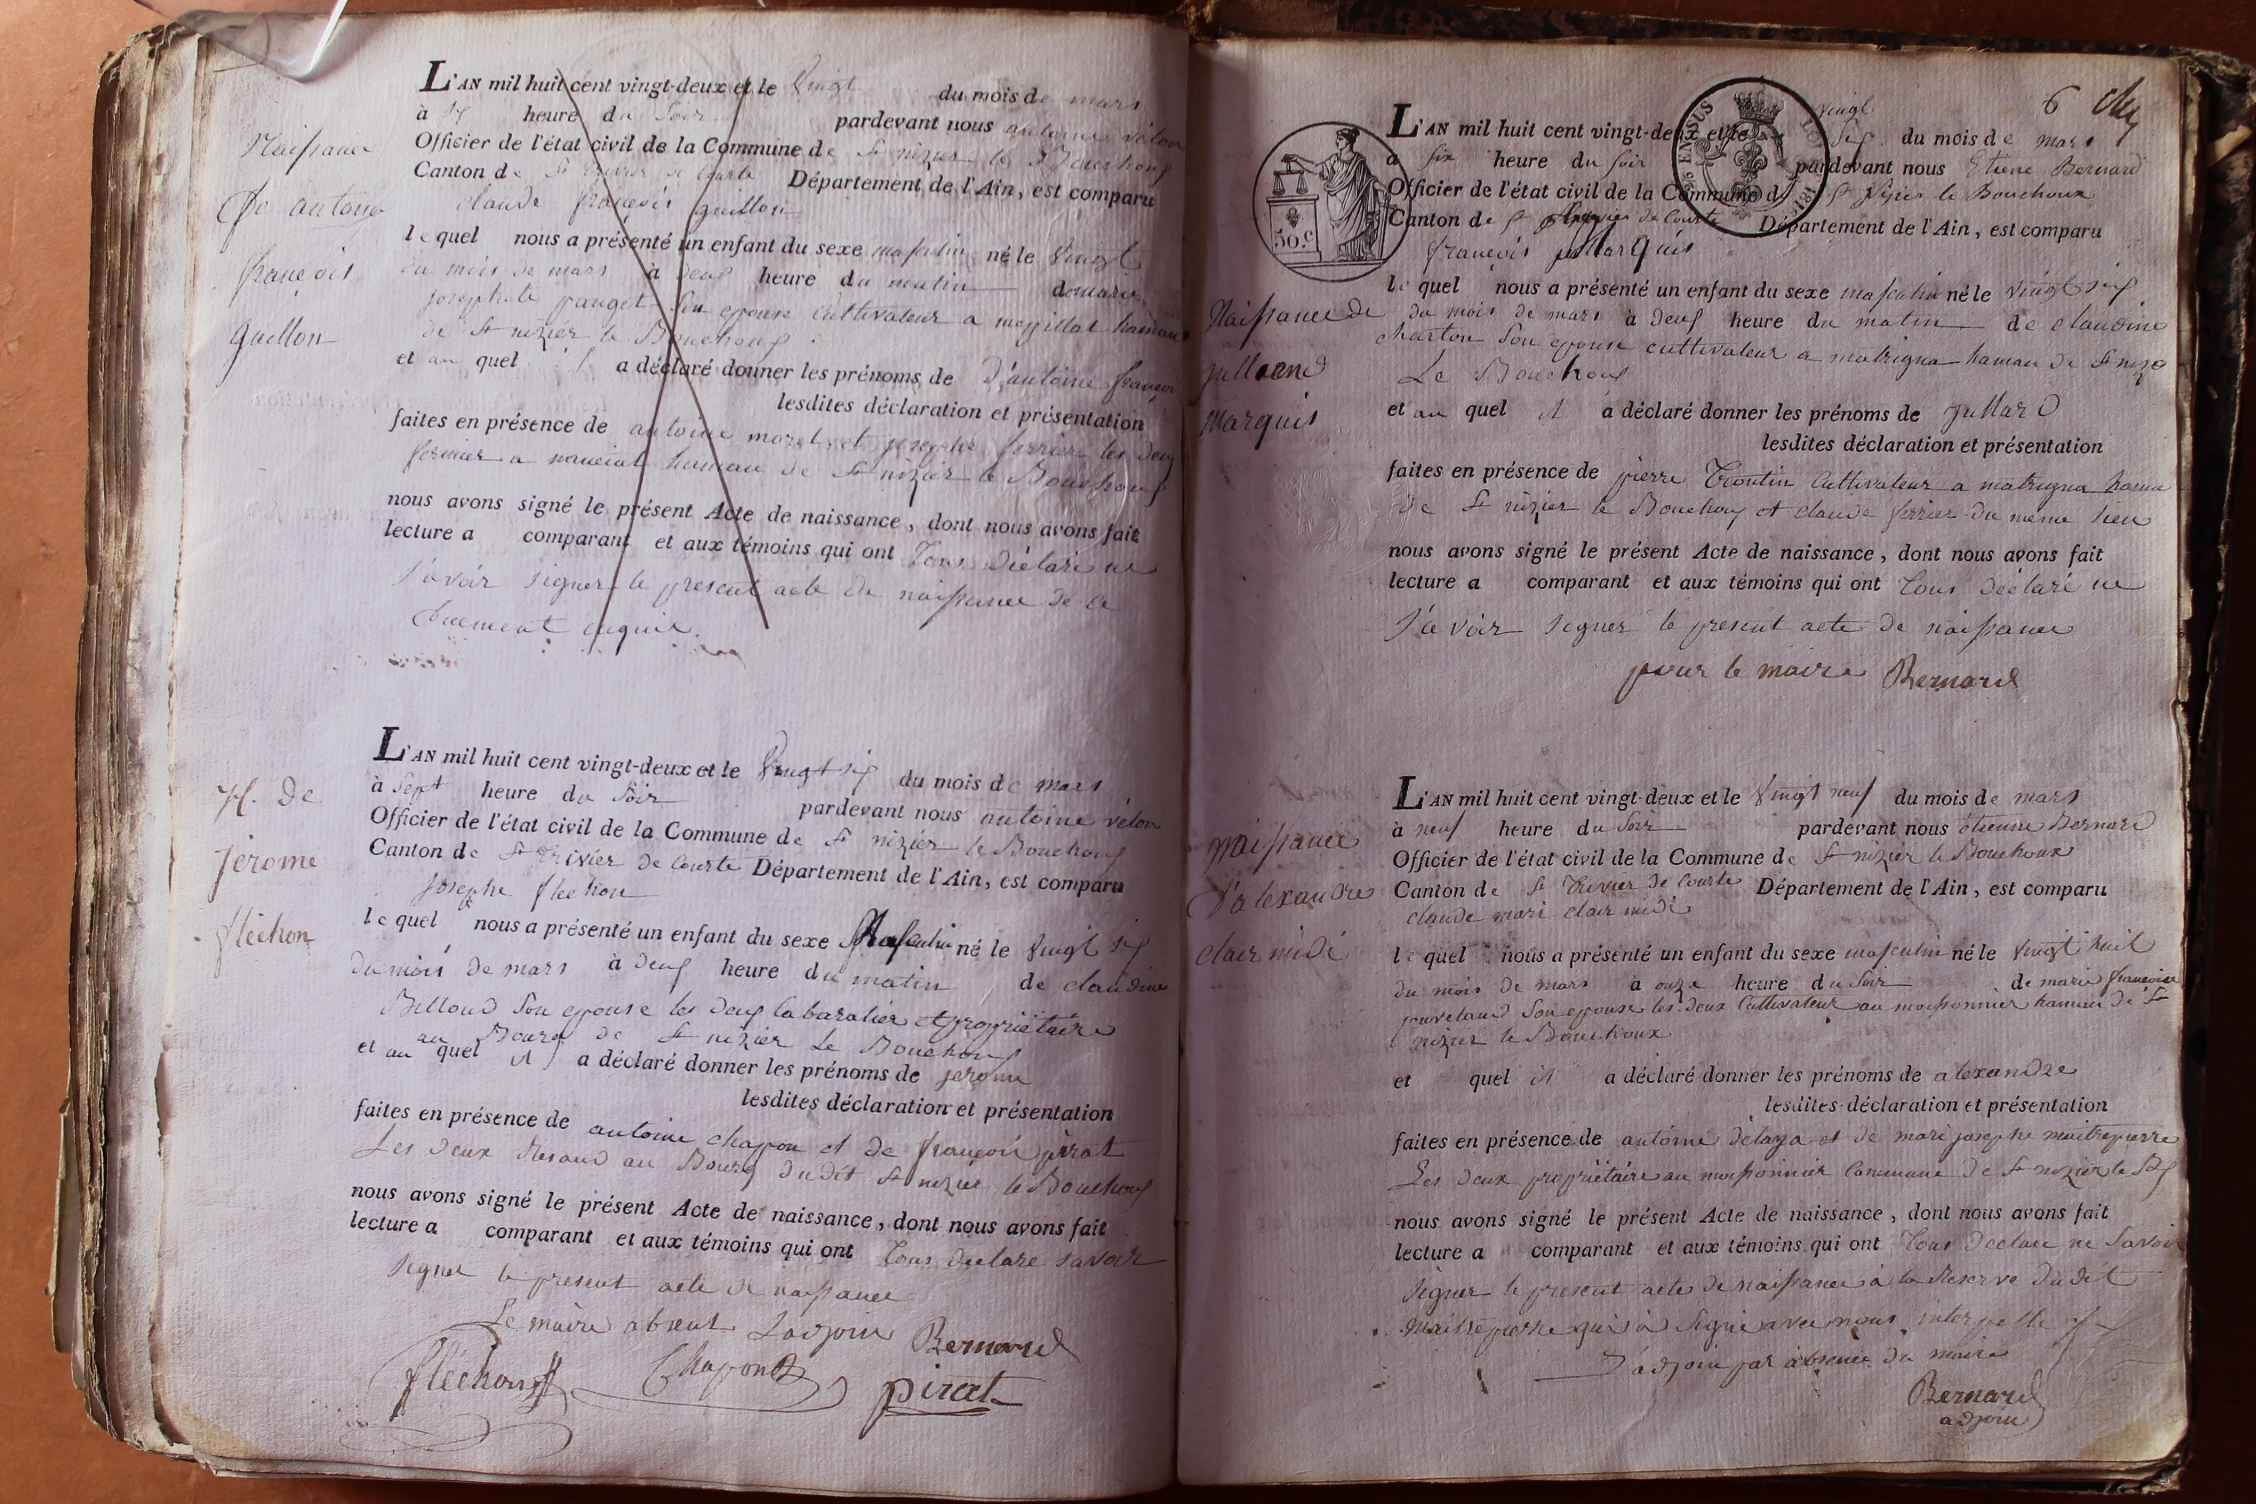 L'AN mil huit cent vingt-deux et le vingt du mois de mars
à heure du soir pardevant nous antoine vélon
Officier de l'état civil de la Commune de St nizier le Bouchoux
Canton de St trivier de Courte Département de l'Ain, est comparu
claude françois guillon
lequel nous a présenté un enfant du sexe masculin né le vingt
du mois de mars à deux heure du matin de marie
josephete pauget son epouse Cultivateur a meyillat hameau
de St nizier le Bouchoux
et au quel il a déclaré donner les prénoms de d'antoine françois
lesdites déclaration et présentation
faites en présence de antoine morel et josephe ferrier les deux
fermier a hameau de St nizier le Bouchoux
nous avons signé le présent Acte de naissance, dont nous avons fait
lecture a comparant et aux témoins qui ont tous déclaré ne
savoir signer le present acte de naissance de ce
Naissance
De antoine
françois
guillon
L'AN mil huit cent vingt-deux et le vingt six du mois de mars
à sept heure du soir pardevant nous antoine vélon
Officier de l'état civil de la Commune de St nizier le Bouchoux
Canton de St trivier de Courte Département de l'Ain, est comparu
josephe flechon
lequel nous a présenté un enfant du sexe Masculin né le vingt six
du mois de mars à deux heure du matin, de claudine
Billoud son epouse les deux labaratier et propriétaire
au Bourg de St nizier Le Bouchoux
et au quel il a déclaré donner les prénoms de jerome
lesdites déclaration et présentation
faites en présence de antoine chapon et de françois pirat
Les deux Resand au Bourg dudit St nizier le Bouchoux
nous avons signé le présent Acte de naissance, dont nous avons fait
lecture a comparant et aux témoins qui ont tous declare savoir
signer le present acte de naissance
Le maire absent Ladjoin Bernard
fléchon Chapon pirat
N. de
jerome
flechon
6
50.c
L'AN mil huit cent vingt-deux et le vingt
six du mois de mars
à six heure du soir pardevant nous Etiene Bernard
Officier de l'état civil de la Commune de St Nizier le Bouchoux
Canton de St trivier de Courte Département de l'Ain, est comparu
françois Marquis
lequel nous a présenté un enfant du sexe masculin né le vingt six
du mois de mars à deux heure du matin de claudine
charton son epouse cultivateur a matrigna hamau de St nizie
Le Bouchoux
et au quel il a déclaré donner les prénoms de jullard
lesdites déclaration et présentation
faites en présence de pierre trontin Cultivateur a matrigna hamau
de St nizier le Bouchoux et claude ferrier du meme lieu
nous avons signé le présent Acte de naissance, dont nous avons fait
lecture a comparant et aux témoins qui ont tous déclaré ne
savoir signer le present acte de naissance
pour le maire Bernard
Naissance de
Marquis
L'AN mil huit cent vingt-deux et le vingt neuf du mois de mars
à neuf heure du soir pardevant nous étienne Bernard
Officier de l'état civil de la Commune de St nizier le Bouchoux
Canton de St trivier de Courte Département de l'Ain, est comparu
claude mari clair midi
lequel nous a présenté un enfant du sexe masculin né le vingt huit
du mois de mars à onze heure du soir de marie françoise
son epouse les deux Cultivateur au moissonnier hamau de St
nizier le Bouchoux
et quel il a déclaré donner les prénoms de alexandre
lesdites déclaration et présentation
faites en présence de antoine délaya et de mari josephe maitrepierre
Les deux propriétaire au moissonnier Commune de St nizier le Bx
nous avons signé le présent Acte de naissance, dont nous avons fait
lecture a comparant et aux témoins qui ont tous declare ne savoir
signer le present acte de naissance à la Reserve dudit
Maitrepierre qui à signé avec nous interpelle
L'adjoin par absence du maire
Bernard
adjoin
Naissance
D'alexandre
clair midi